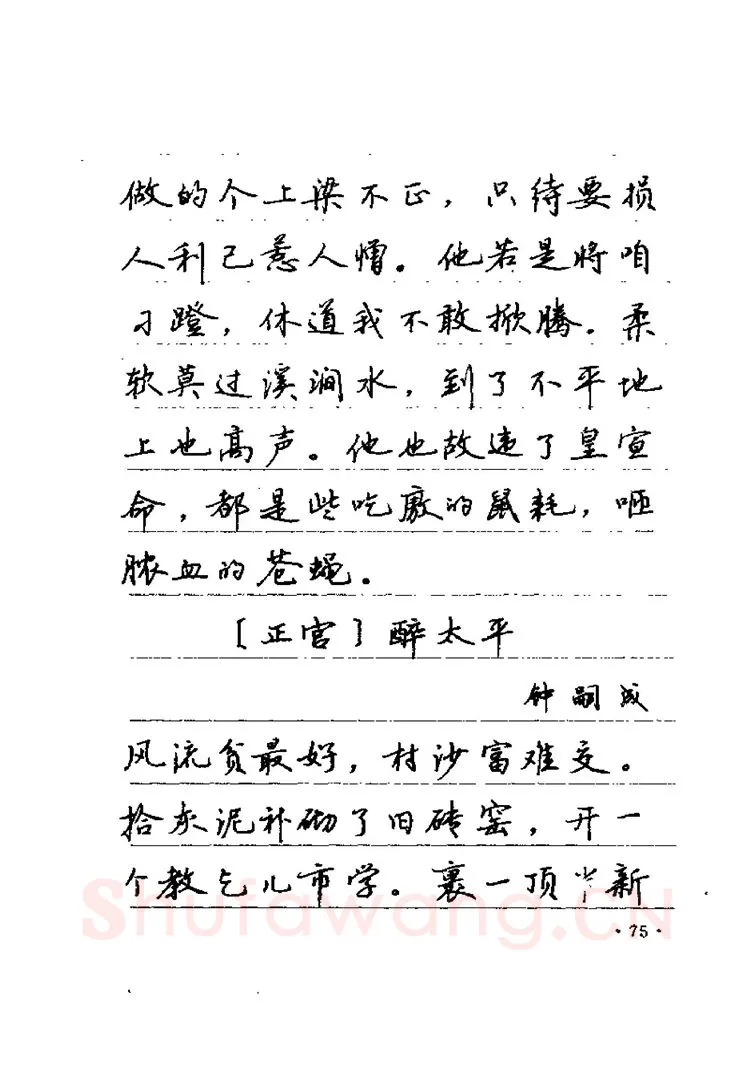 做的个上梁不正，只待要损
人利己惹人憎。他若是将咱
刁蹬，休道我不敢掀腾。柔
软莫过溪涧水，到了不平地
上也高声。他也故违了皇宣
命，都是些吃廒的鼠耗，咂
脓血的苍蝇。
〔正宫〕醉太平
钟嗣成
风流贫最好，村沙富难交。
拾灰泥补砌了旧砖窑，开一
个教乞儿市学。裹一顶半新
Shufawang.CN
·75·